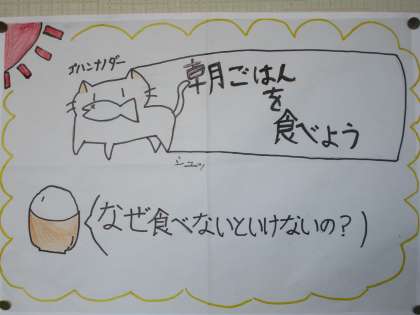 ゴハンナノダー
朝ごはん
を
食べよう
なぜ食べないといけないの?